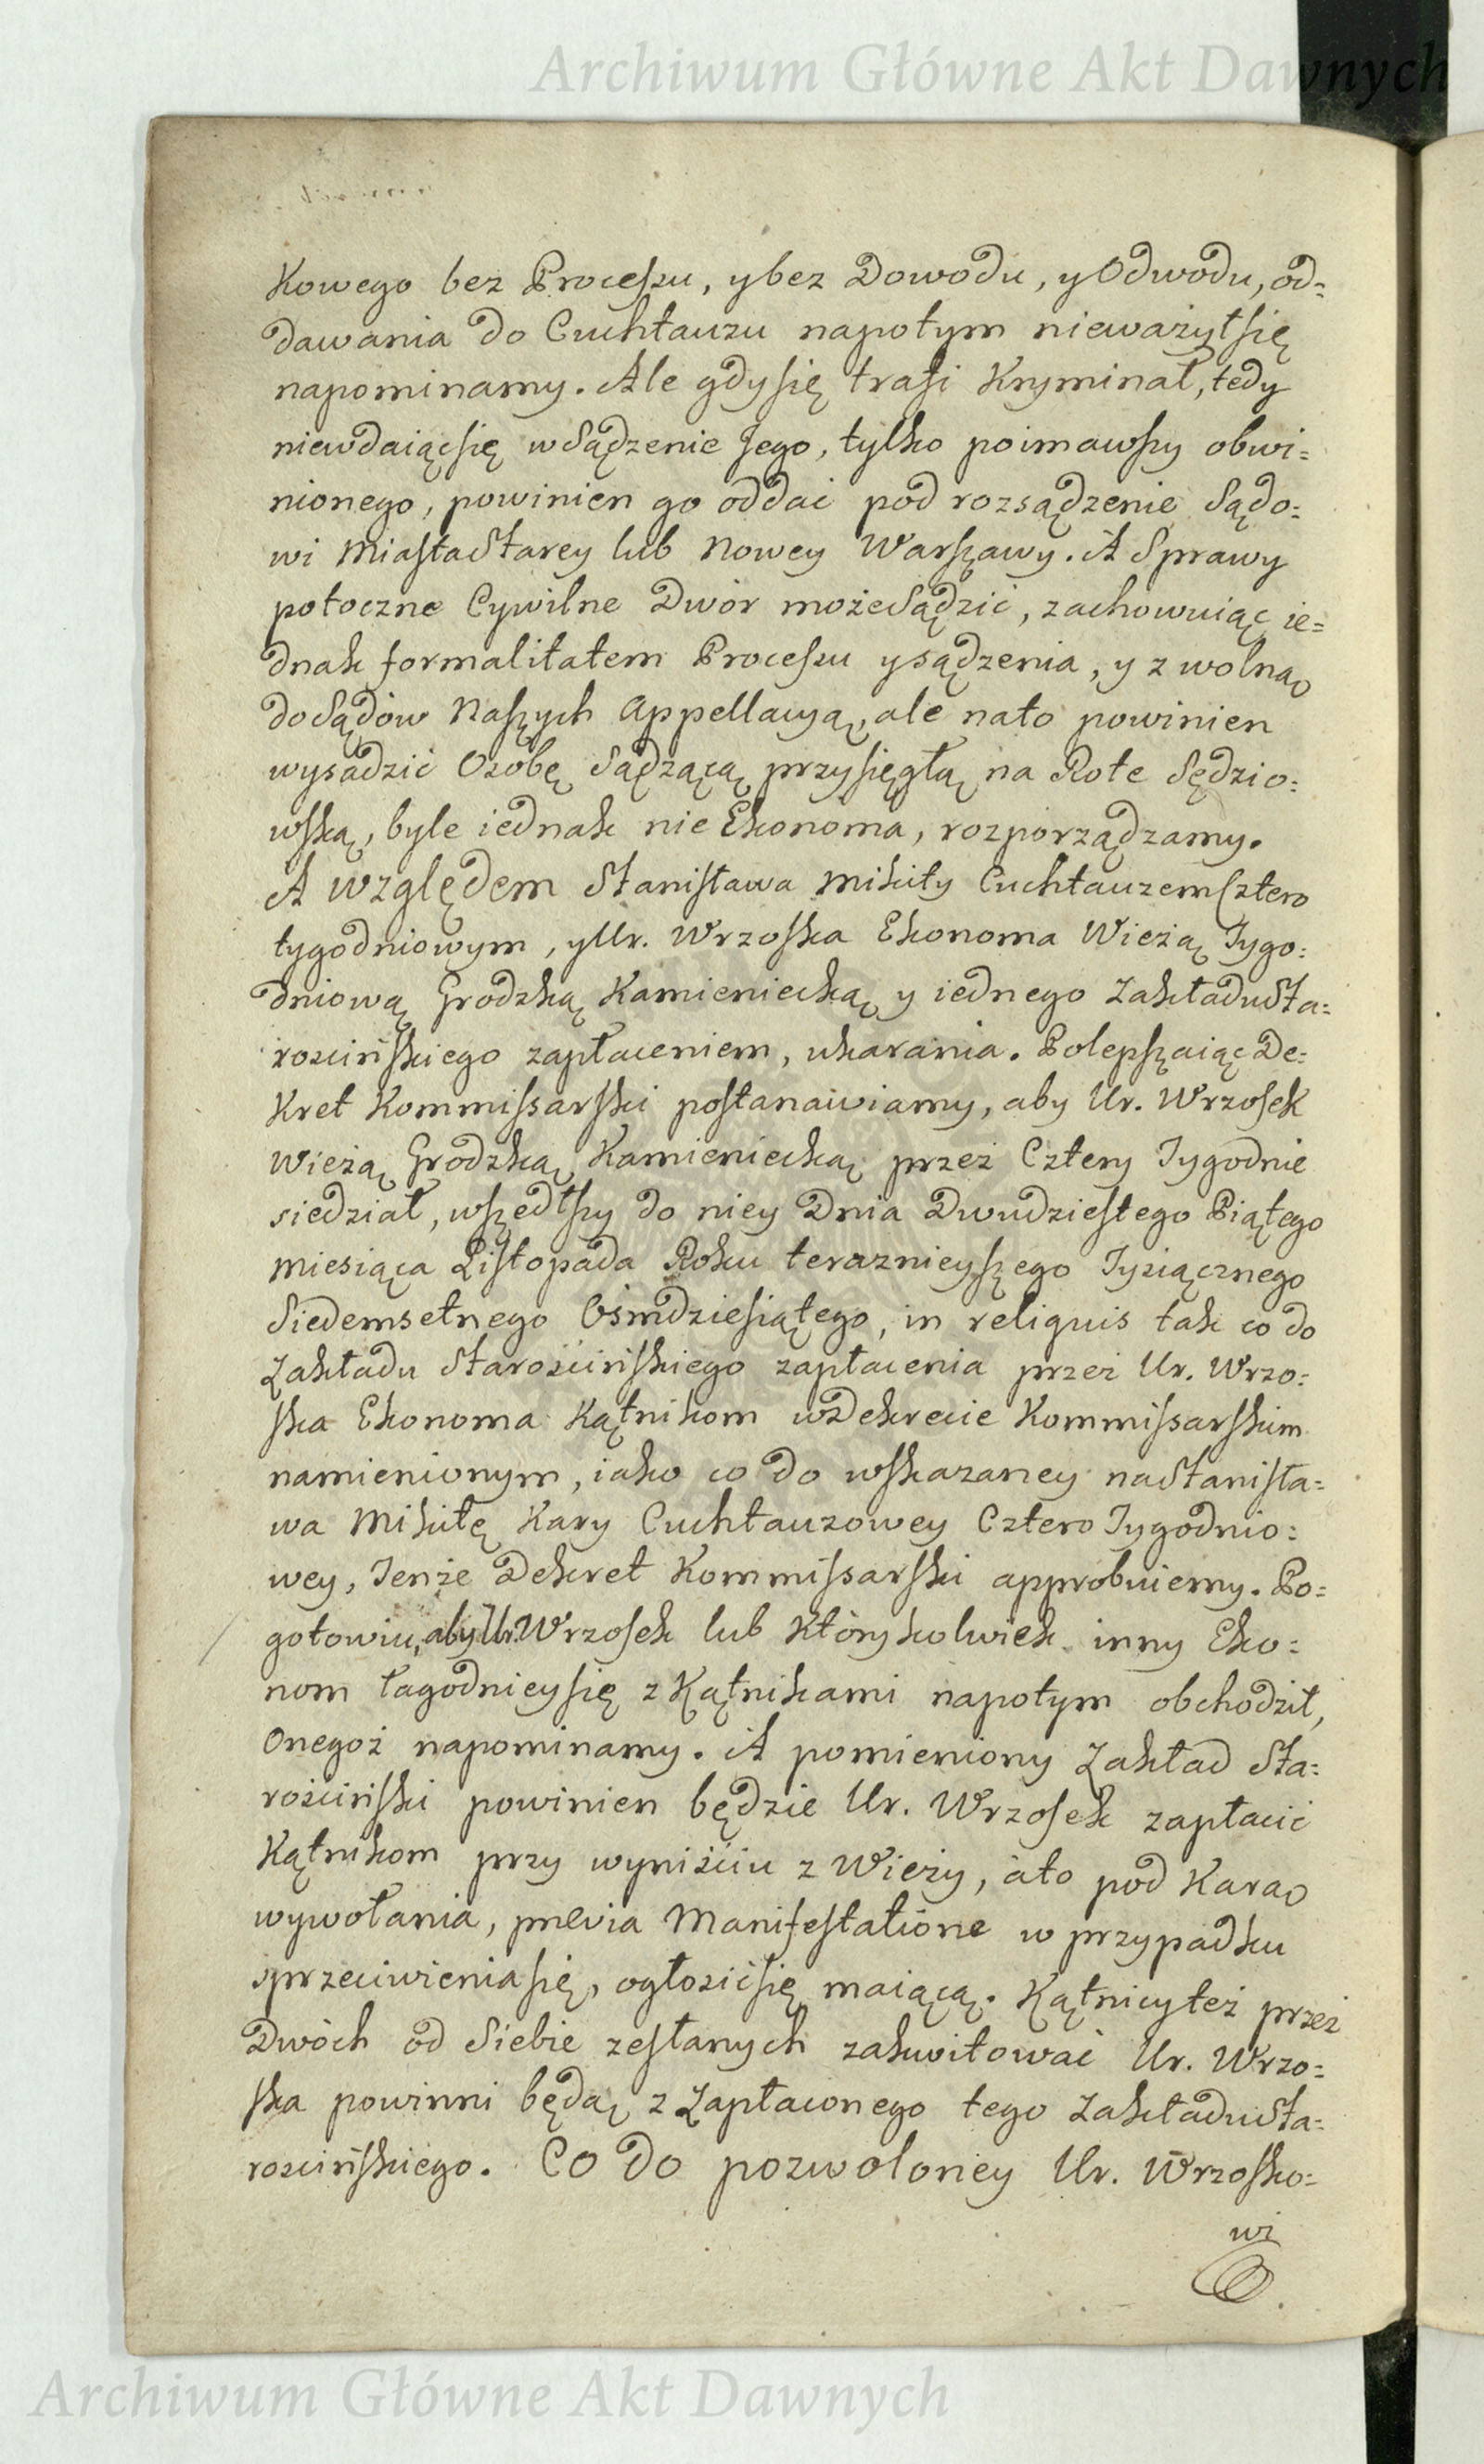 Archiwum Główne Akt Dawnych
Kowego bez Processu, y bez Dowodu, y Odwodu, od=
dawania do Cuchtauzu napotym nieważył się
napominamy. Ale gdy się trafi Kryminał, tedy
niewdaiąc się w Sądzenie Jego, tylko poimawszy obwi=
nionego, powinien go oddać pod rozsądzenie Sądo=
wi Miasta Starey lub Nowey Warszawy. A Sprawy
potoczne Cywilne Dwór może Sądzić, zachowuiąc ie=
dnak formalitatem Processu y sądzenia, y z wolną
do Sądów Naszych Appellacyą, ale na to powinien
wysadzić Osobę Sądzącą przysięgłą na Rotę Sędzio=
wską, byle iednak nie Ekonoma, rozporządzamy.
A względem Stanisława Mikuły Cuchtauzem Cztero
tygodniowym, y Ur. Wrzoska Ekonoma Wieżą Tygo=
dniową Grodzką Kamieniecką y iednego Zakładu Sta=
rościńskiego zapłaceniem, ukarania. Polepszaiąc De=
kret Kommissarski postanawiamy, aby Ur. Wrzosek
Wieżą Grodzką Kamieniecką przez Cztery Tygodnie
siedział, wszedłszy do niey Dnia Dwudziestego Piątego
Miesiąca Listopada Roku teraznieyszego Tysiącznego
Siedemsetnego Osmdziesiątego, in reliquis tak co do
Zakładu Starościńskiego zapłacenia przez Ur. Wrzo=
ska Ekonoma Kątnikom w Dekrecie Kommissarskim
namienionym, iako co do wskazaney na Stanisła=
wa Mikułę Kary Cuchtauzowey Cztero Tygodnio=
wey, Tenże Dekret Kommissarski approbuiemy. Po=
gotowiu, aby Ur. Wrzosek lub Którykolwiek inny Eko=
nom łagodniey się z Kątnikami napotym obchodził,
Onegoż napominamy. A pomieniony Zakład Sta=
rościński powinien będzie Ur. Wrzosek zapłacić
Kątnikom przy wyniściu z Wieży, a to pod Karą
wywołania, prævia Manifestatione w przypadku
sprzeciwienia się, ogłosić się maiącą. Kątnicy też przez
Dwóch od Siebie zesłanych zakwitować Ur. Wrzo=
ska powinni będą z Zapłaconego tego Zakładu Sta=
rościńskiego. Co do pozwoloney Ur. Wrzosko=
wi
Archiwum Główne Akt Dawnych